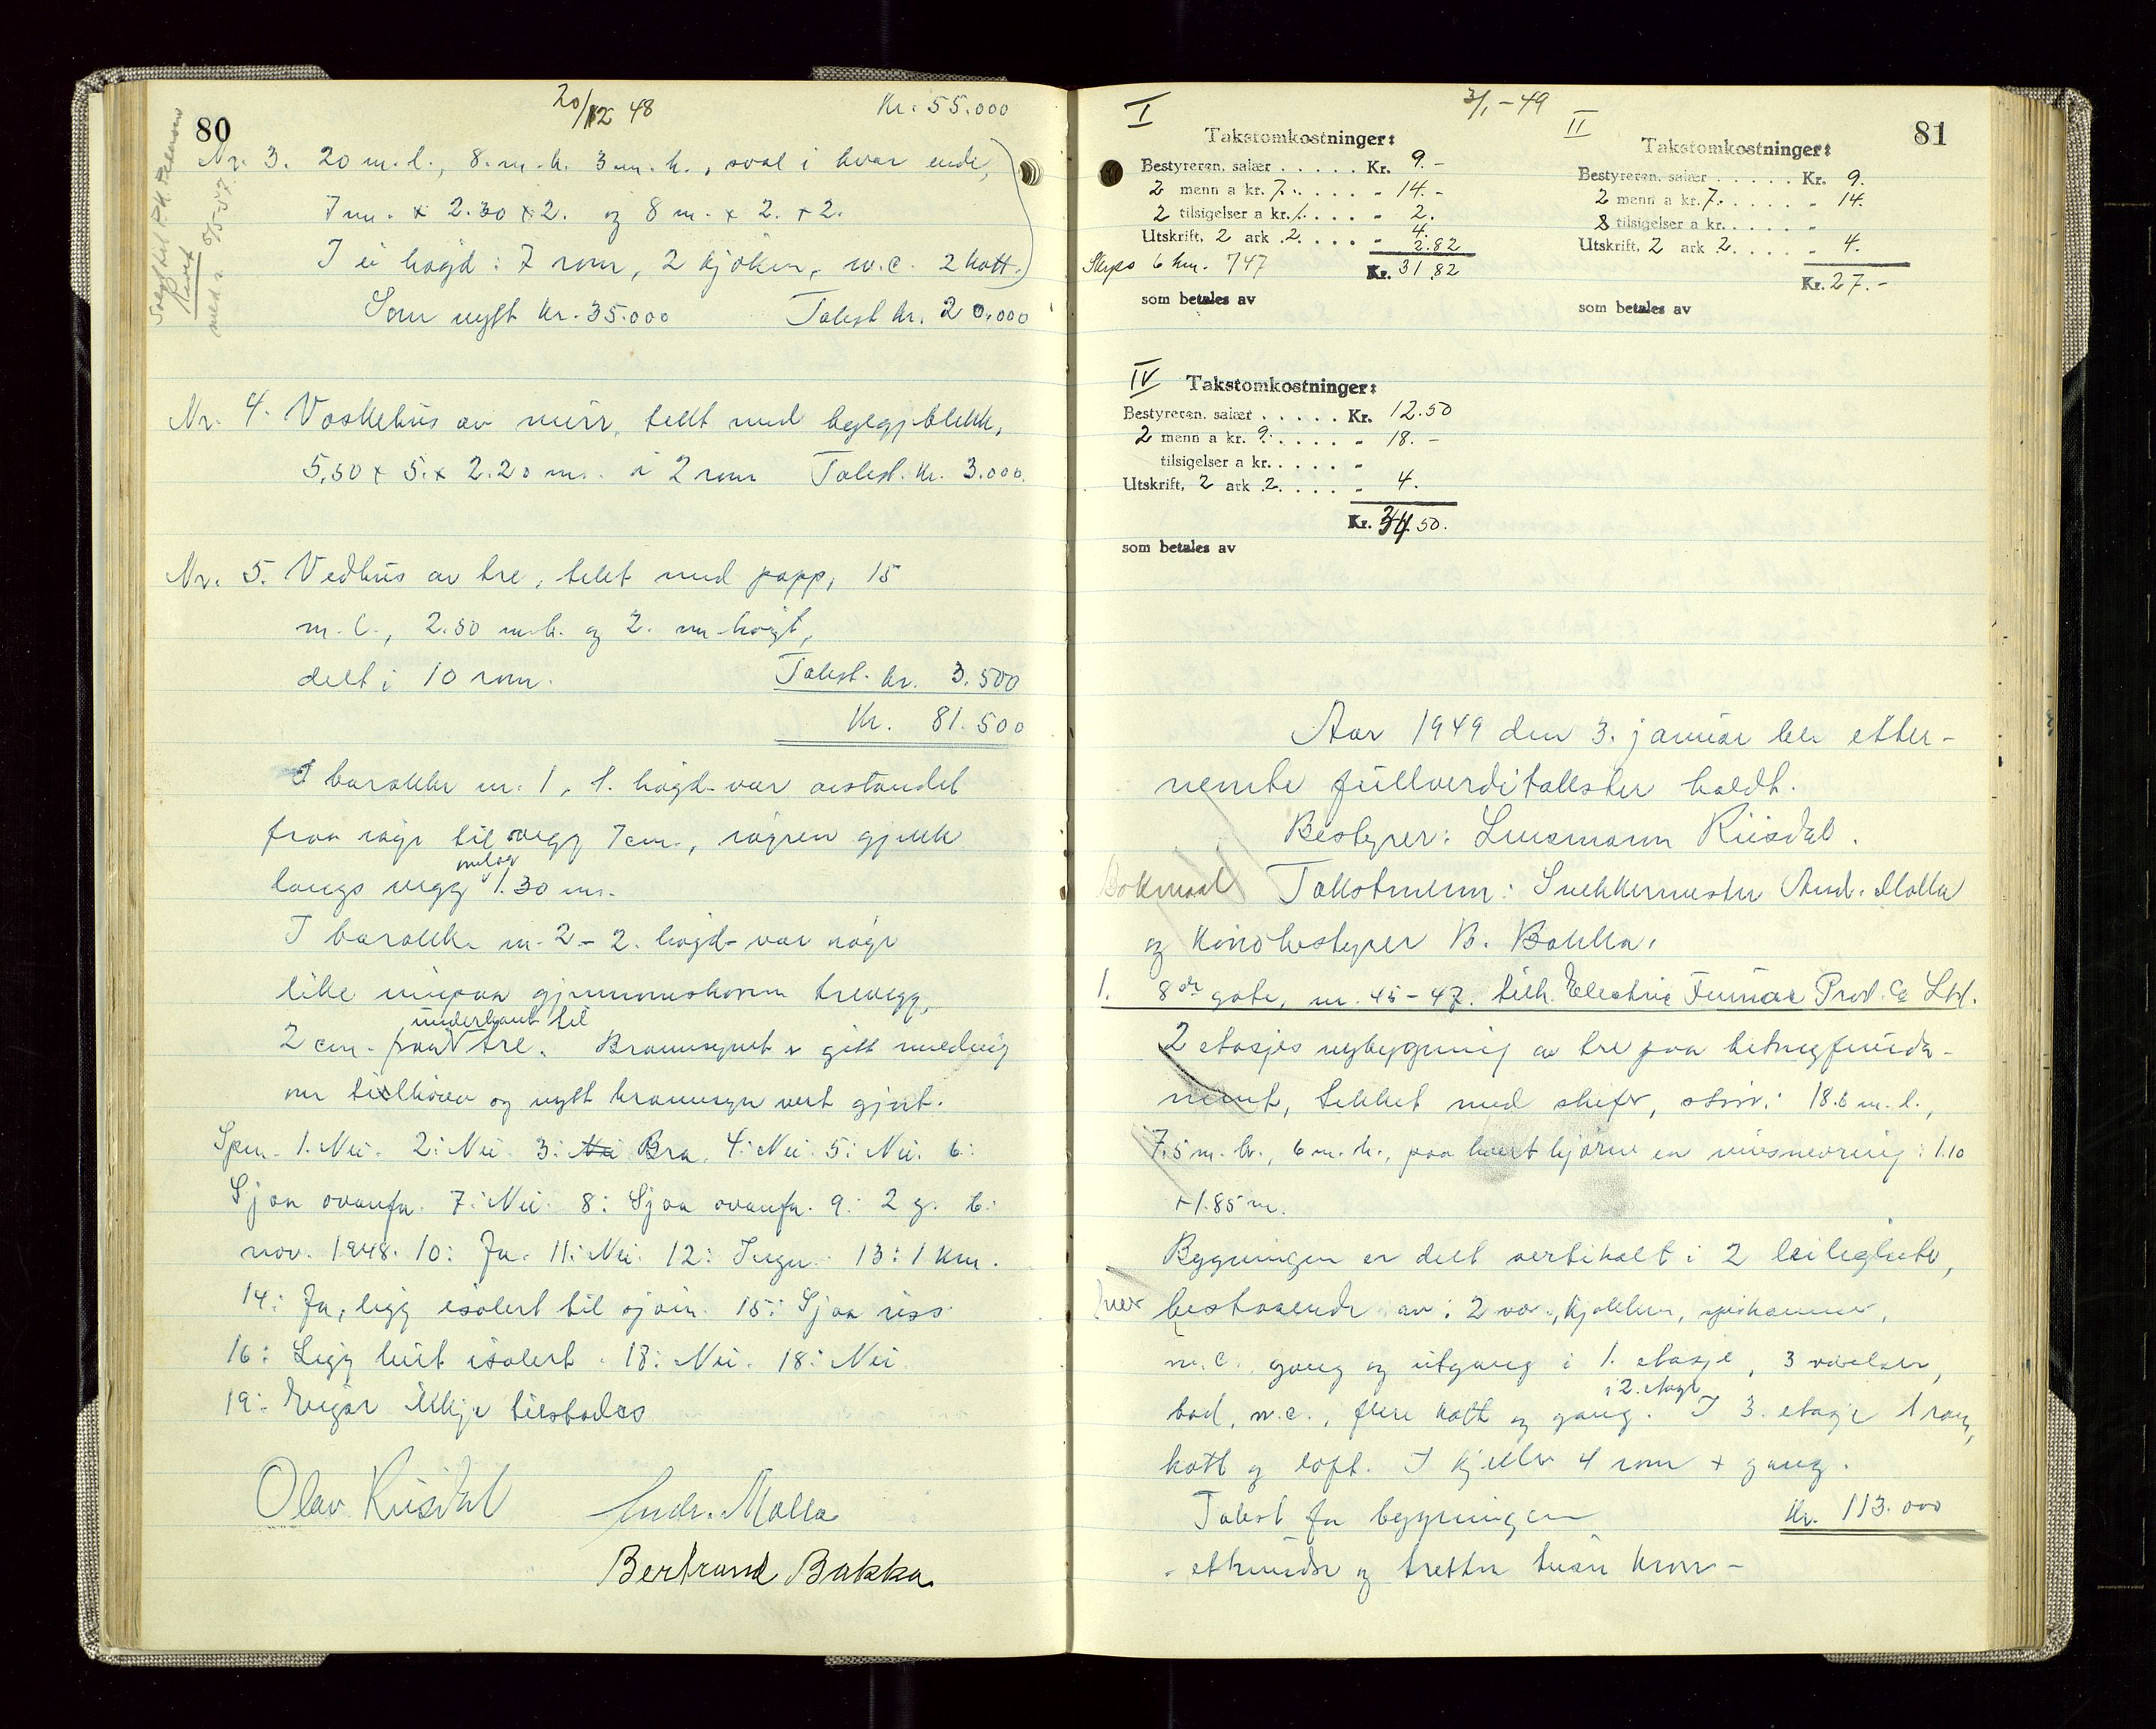 80
20/12 48
Kr. 55.000
Nr. 3. 20 m.l., 8. m.b. 3 m.h., sval i kvar ende,
7 m. x 2.30 x 2. og 8 m. x 2. x 2.
I ei høgd: 7 rom, 2 kjøken, w.c. 2 kott.
Som nytt kr. 35.000 Takst kr. 20.000
Nr. 4. Vaskehus av murr, tekt med bylgjeblekk,
5,50 x 5. x 2.20 m. i 2 rom Takst. kr. 3.000.
Nr. 5. Vedhus av tre, tekt med papp, 15
m. l., 2.50 m.b. og 2. m høgt,
delt i 10 rom. Takst. kr. 3.500
Kr. 81.500
I barakke nr. 1, 1. høgd var avstandet
fraa røyr til vegg 7 cm., røyren gjekk
langs vegg 1.30 m.
I barakke nr. 2 - 2. høgd var røyr
like gjennom trevegg,
2 cm. fraa tre. underkant til Brannsynet er gitt melding
om tilhøva og nytt brannsyn vert gjort.
Spm. 1. Nei. 2: Nei. 3: Nei Bra. 4: Nei. 5: Nei. 6:
Sjaa ovanfor. 7: Nei. 8: Sjaa ovanfor. 9: 2 g. 6:
nov. 1948. 10: Ja. 11: Nei. 12: Ingen. 13: 1 km.
14: Ja, ligg isolert til sjøen. 15: Sjaa riss.
16: Ligg heilt isolert. 18: Nei. 18: Nei.
19: Eigar ikkje tilstades
Olav Riisdal Andr. Molla
Bertrand Bakka
81
3/1 - 49
I
Takstomkostninger:
Bestyreren, salær . . . . . Kr. 9.-
2 menn a kr. 7. . . . . „ 14.-
2 tilsigelser a kr. 1. . . . . „ 2.
Utskrift, 2 ark 2. . . . . „ 4.
2.82
Skyss 6 km. 747 Kr. 31.82
som betales av
II
Takstomkostninger:
Bestyreren, salær . . . . . Kr. 9.
2 menn a kr. 7. . . . . „ 14.
tilsigelser a kr. . . . . . „
Utskrift, 2 ark 2. . . . . „ 4.
Kr. 27.-
som betales av
IV Takstomkostninger:
Bestyreren, salær . . . . . Kr. 12.50
2 menn a kr. 9. . . . . „ 18.-
tilsigelser a kr. . . . . . „
Utskrift, 2 ark 2. . . . . „ 4.
Kr. 34.50.
som betales av
Aar 1949 den 3. januar ble etter-
nemte fullverditakster holdt.
Bestyrer: Lensmann Riisdal.
Bokmaal Takstmenn: Snekkermester And. Molla
og Kinobestyrer B. Bakka.
1. 8de gate, nr. 45-47. tilh. Electric Furnace Prod. Co Ltd.
2 etasjes nybygning av tre paa betongfunda-
ment, tekket med skifer, størr.: 18.6 m. l.,
7.5 m. br., 6 m. h., paa hvert hjørne en innsnevring: 1.10
x 1.85 m.
Bygningen er delt vertikalt i 2 leiligheter,
hver bestaaende av: 2 vær., kjøkken, spiskammer,
w.c. gang og utgang i 1. etasje, 3 værelser,
bad, w.c., flere kott og gang. i 2. etasje I 3. etasje 1 rom,
kott og loft. I kjeller 4 rom + gang.
Takst for bygningen Kr. 113.000
- ethundre og tretten tusen kroner -